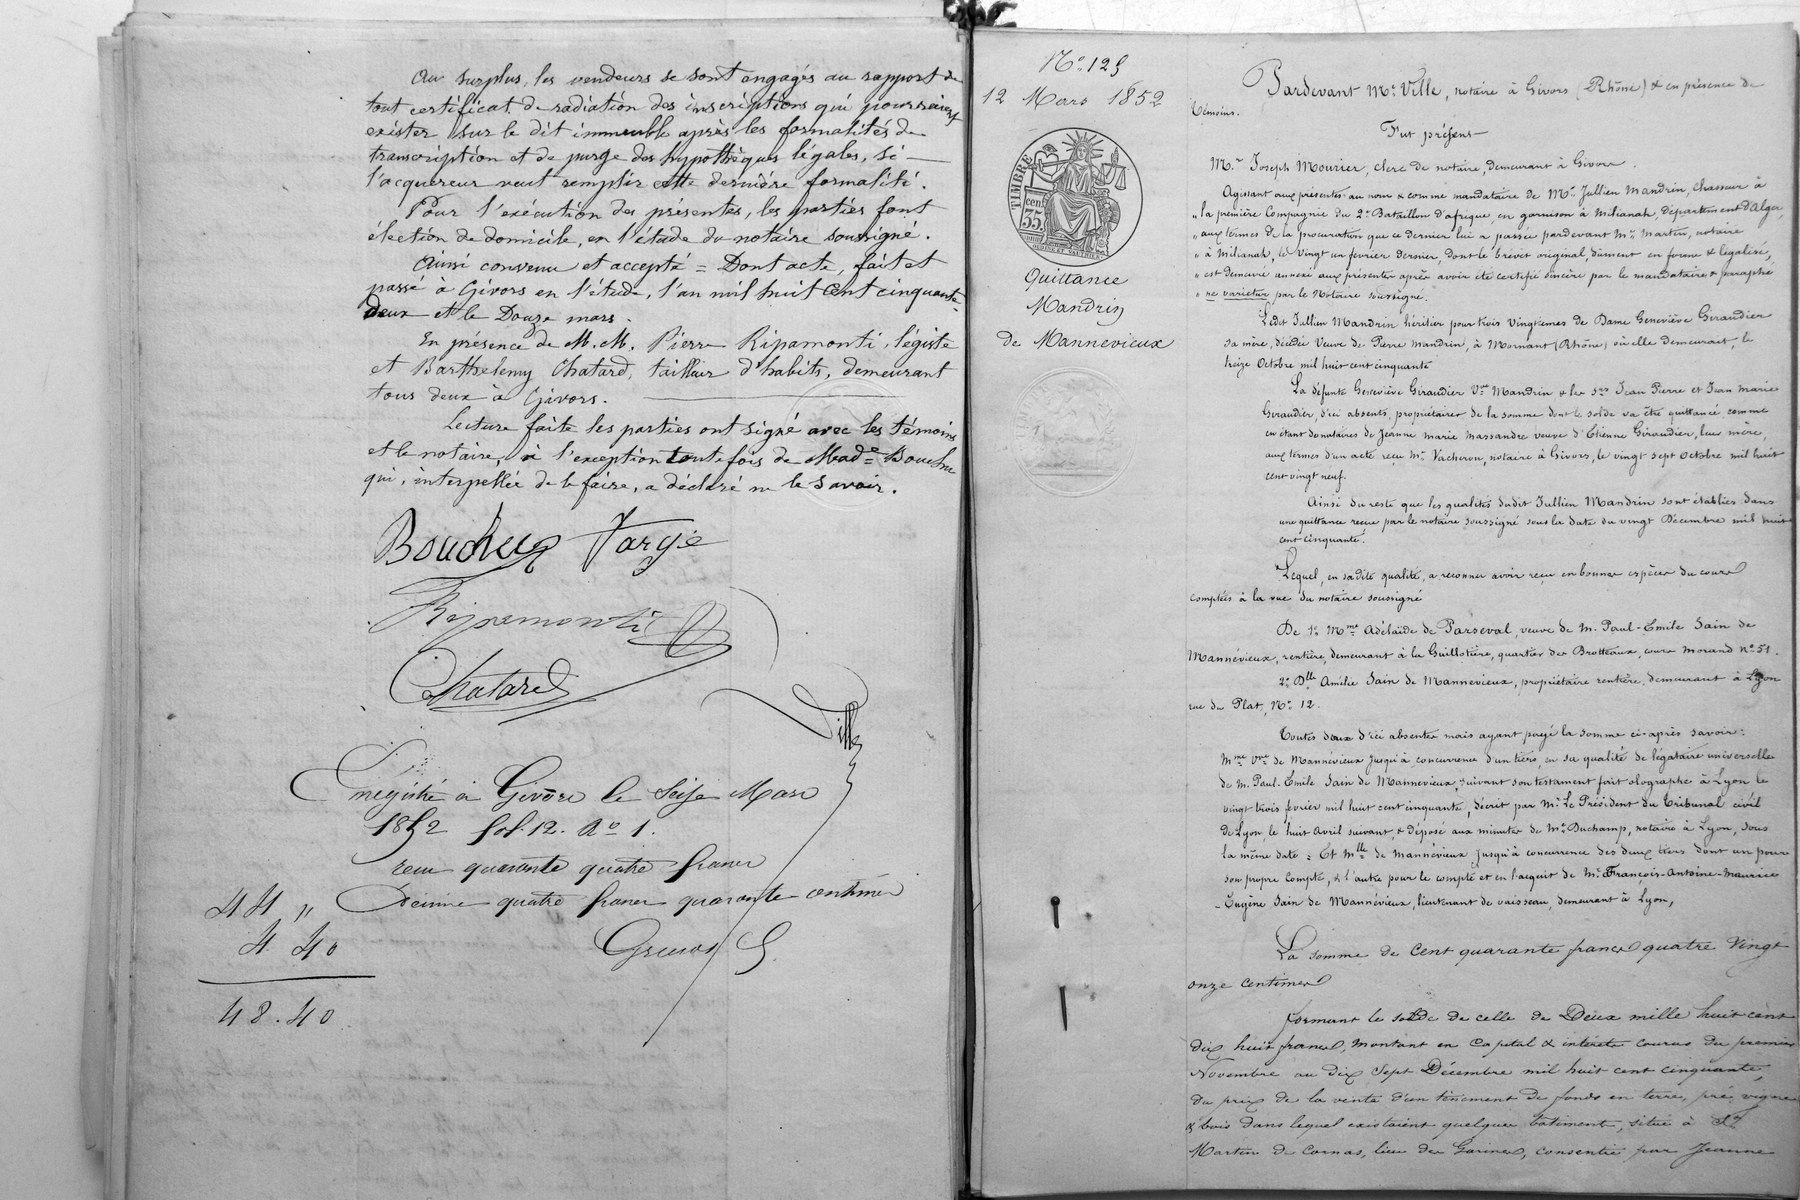 Au surplus, les vendeurs se sont engagés au rapport de
tout certificat de radiation des inscriptions qui pourraient
exister sur le dit immeuble après les formalités de
transcription et de purge des hypothèques légales, si
l'acquéreur veut remplir cette dernière formalité.
Pour l'exécution des présentes, les parties font
élection de domicile, en l'étude du notaire soussigné.
Ainsi convenu et accepté = Dont acte, fait et
passé à Givors en l'étude, l'an mil huit cent cinquante
deux et le Douze mars.
En présence de M.M. Pierre Ripamonti, légiste
et Barthélemy Chatard, tailleur d'habits, demeurant
tous deux à Givors.
Lecture faite les parties ont signé avec les témoins
et le notaire, à l'exception toutefois de Made Bouchu
qui, interpellée de le faire, a déclaré ne le savoir.
Bouchu Fargie
Ripamonti
Chatard
Ville
Enregistré à Givors le Seize Mars
1852 fol. 12. Ro 1.
reçu quarante quatre francs
Décime quatre francs quarante centimes
44 "
4. 40
48.40
No. 125
12 Mars 1852
TIMBRE
35 cen.
Quittance
Mandrin
de Mannevieux
Pardevant Me. Ville, notaire à Givors (Rhône) & en présence de
témoins.
Fut présent
Mr. Joseph Mourier, clerc de notaire, demeurant à Givors.
Agissant aux présentes au nom & comme mandataire de Mr. Jullien Mandrin, Chasseur à
" la première Compagnie du 2e. Bataillon d'afrique, en garnison à Milianah, département d'Alger,
" aux termes de la procuration que ce dernier lui a passée pardevant Me. Martin, notaire
" à Milianah, le vingt un février dernier, dont le brevet original, dûment en forme & légalisé,
" est demeuré annexé aux présentes après avoir été certifié sincère par le mandataire & paraphé
" ne varietur par le Notaire soussigné.
Ledit Jullien Mandrin héritier pour trois vingtièmes de Dame Geneviève Giraudier
sa mère, décédée veuve de Pierre Mandrin, à Mornant (Rhône) où elle demeurait, le
treize Octobre mil huit cent cinquante
La défunte Geneviève Giraudier Ve Mandrin & les srs Jean Pierre et Jean Marie
Giraudier, d'ici absents, propriétaires de la somme dont le solde va être quittancé comme
en étant donataires de Jeanne Marie Massandre veuve d'Etienne Giraudier, leur mère,
aux termes d'un acte reçu Me. Vacheron, notaire à Givors, le vingt sept Octobre mil huit
cent vingt neuf.
Ainsi du reste que les qualités dudit Jullien Mandrin sont établies dans
une quittance reçue par le notaire soussigné sous la date du vingt Décembre mil huit
cent cinquante.
Lequel, en sadite qualité, a reconnu avoir reçu en bonnes espèces du cours
comptées à la vue du notaire soussigné
De 1o. Mme Adélaïde de Parseval, veuve de M. Paul-Emile Jain de
Mannévieux, rentière, demeurant à la Guillotière, quartier des Brotteaux, cours Morand no 51.
2o. Dlle Amélie Jain de Mannevieux, propriétaire rentière, demeurant à Lyon
rue du Plat, No. 12.
Toutes deux d'ici absentes mais ayant payé la somme ci-après savoir:
Mme Vve de Mannévieux jusqu'à concurrence d'un tiers en sa qualité de légataire universelle
de M. Paul-Emile Jain de Mannevieux, suivant son testament fait olographe à Lyon le
vingt trois février mil huit cent cinquante, décrit par Mr. Le Président du Tribunal civil
de Lyon, le huit Avril suivant, & déposé aux minutes de Me. Duchamp, notaire à Lyon, sous
la même date: Et Mlle de Mannévieux jusqu'à concurrence des deux tiers dont un pour
son propre compte, & l'autre pour le compte et en l'acquit de Mr. François-Antoine-Maurice
-Eugène Jain de Mannévieux, lieutenant de vaisseau, demeurant à Lyon,
La somme de Cent quarante francs quatre vingt
onze centimes
formant le solde de celle de Deux mille huit cent
dix huit francs, montant en Capital & intérêts courus du premier
Novembre au dix sept Décembre mil huit cent cinquante,
du prix de la vente d'un tènement de fonds en terre, pré, vigne
& bois dans lequel existaient quelques bâtiments, situé à St.
Martin de Cornas, lieu des Garines, consentie par Jeanne